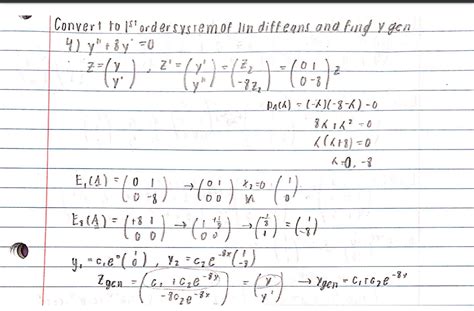 Convert to 1st order system of lin diff eqns and find y gen
4) y" + 8y' = 0
z = (y y') , z' = (y' y") = (z2 -8z2) = (0 1 0 -8) z
PA(λ) = (-λ)(-8-λ) - 0
8λ + λ² = 0
λ(λ+8) = 0
λ = 0, -8
E1(A) = (0 1 0 -8) → (0 1 0 0) x2 = 0 (1 0)
E8(A) = (+8 1 0 0) → (1 +1/8 0 0) → (-1/8 1) = (1 -8)
y1 = c1e⁰(1 0) , y2 = c2e^-8x(1 -8)
Zgen = (c1 + c2e^-8x -8c2e^-8x) = (y y') → ygen = c1 + c2e^-8x